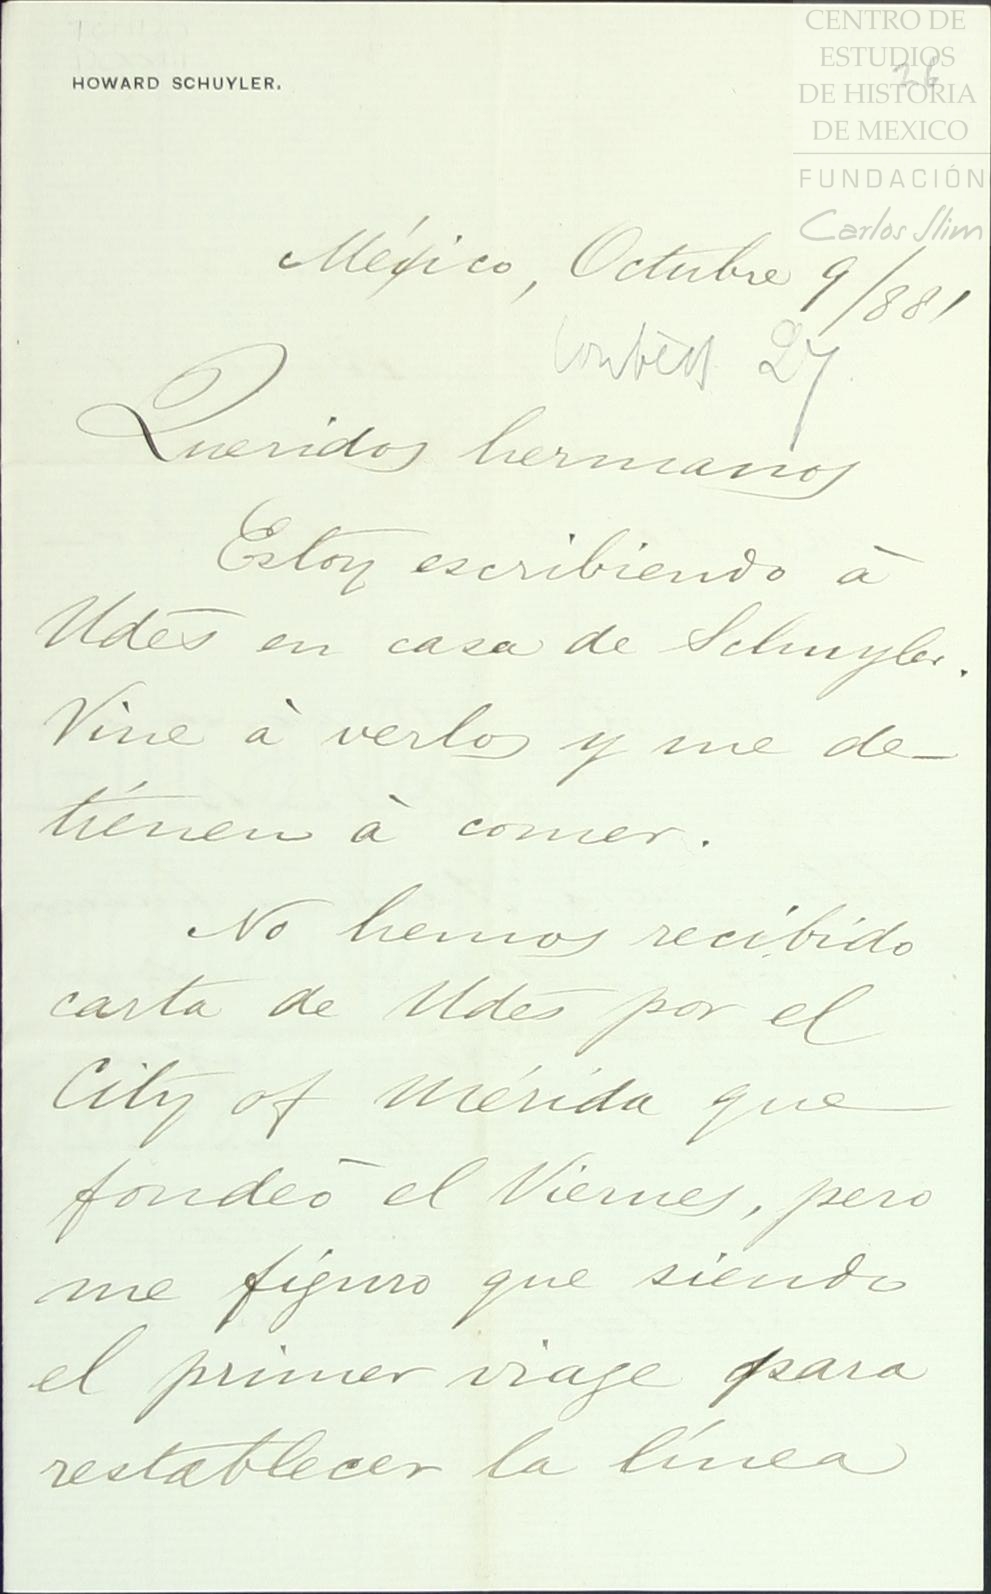 HOWARD SCHUYLER.
CENTRO DE
ESTUDIOS
DE HISTORIA
DE MEXICO
FUNDACIÓN
Carlos Slim
26
México, Octubre 9/881
27
Queridos hermanos
Estoy escribiendo à
Udes en casa de Schuyler.
Vine à verlos y me de-
tiénen à comer.
No hemos recibido
carta de Udes por el
City of Mérida que
fondeó el Viernes, pero
me figuro que siendo
el primer viage para
restablecer la línea